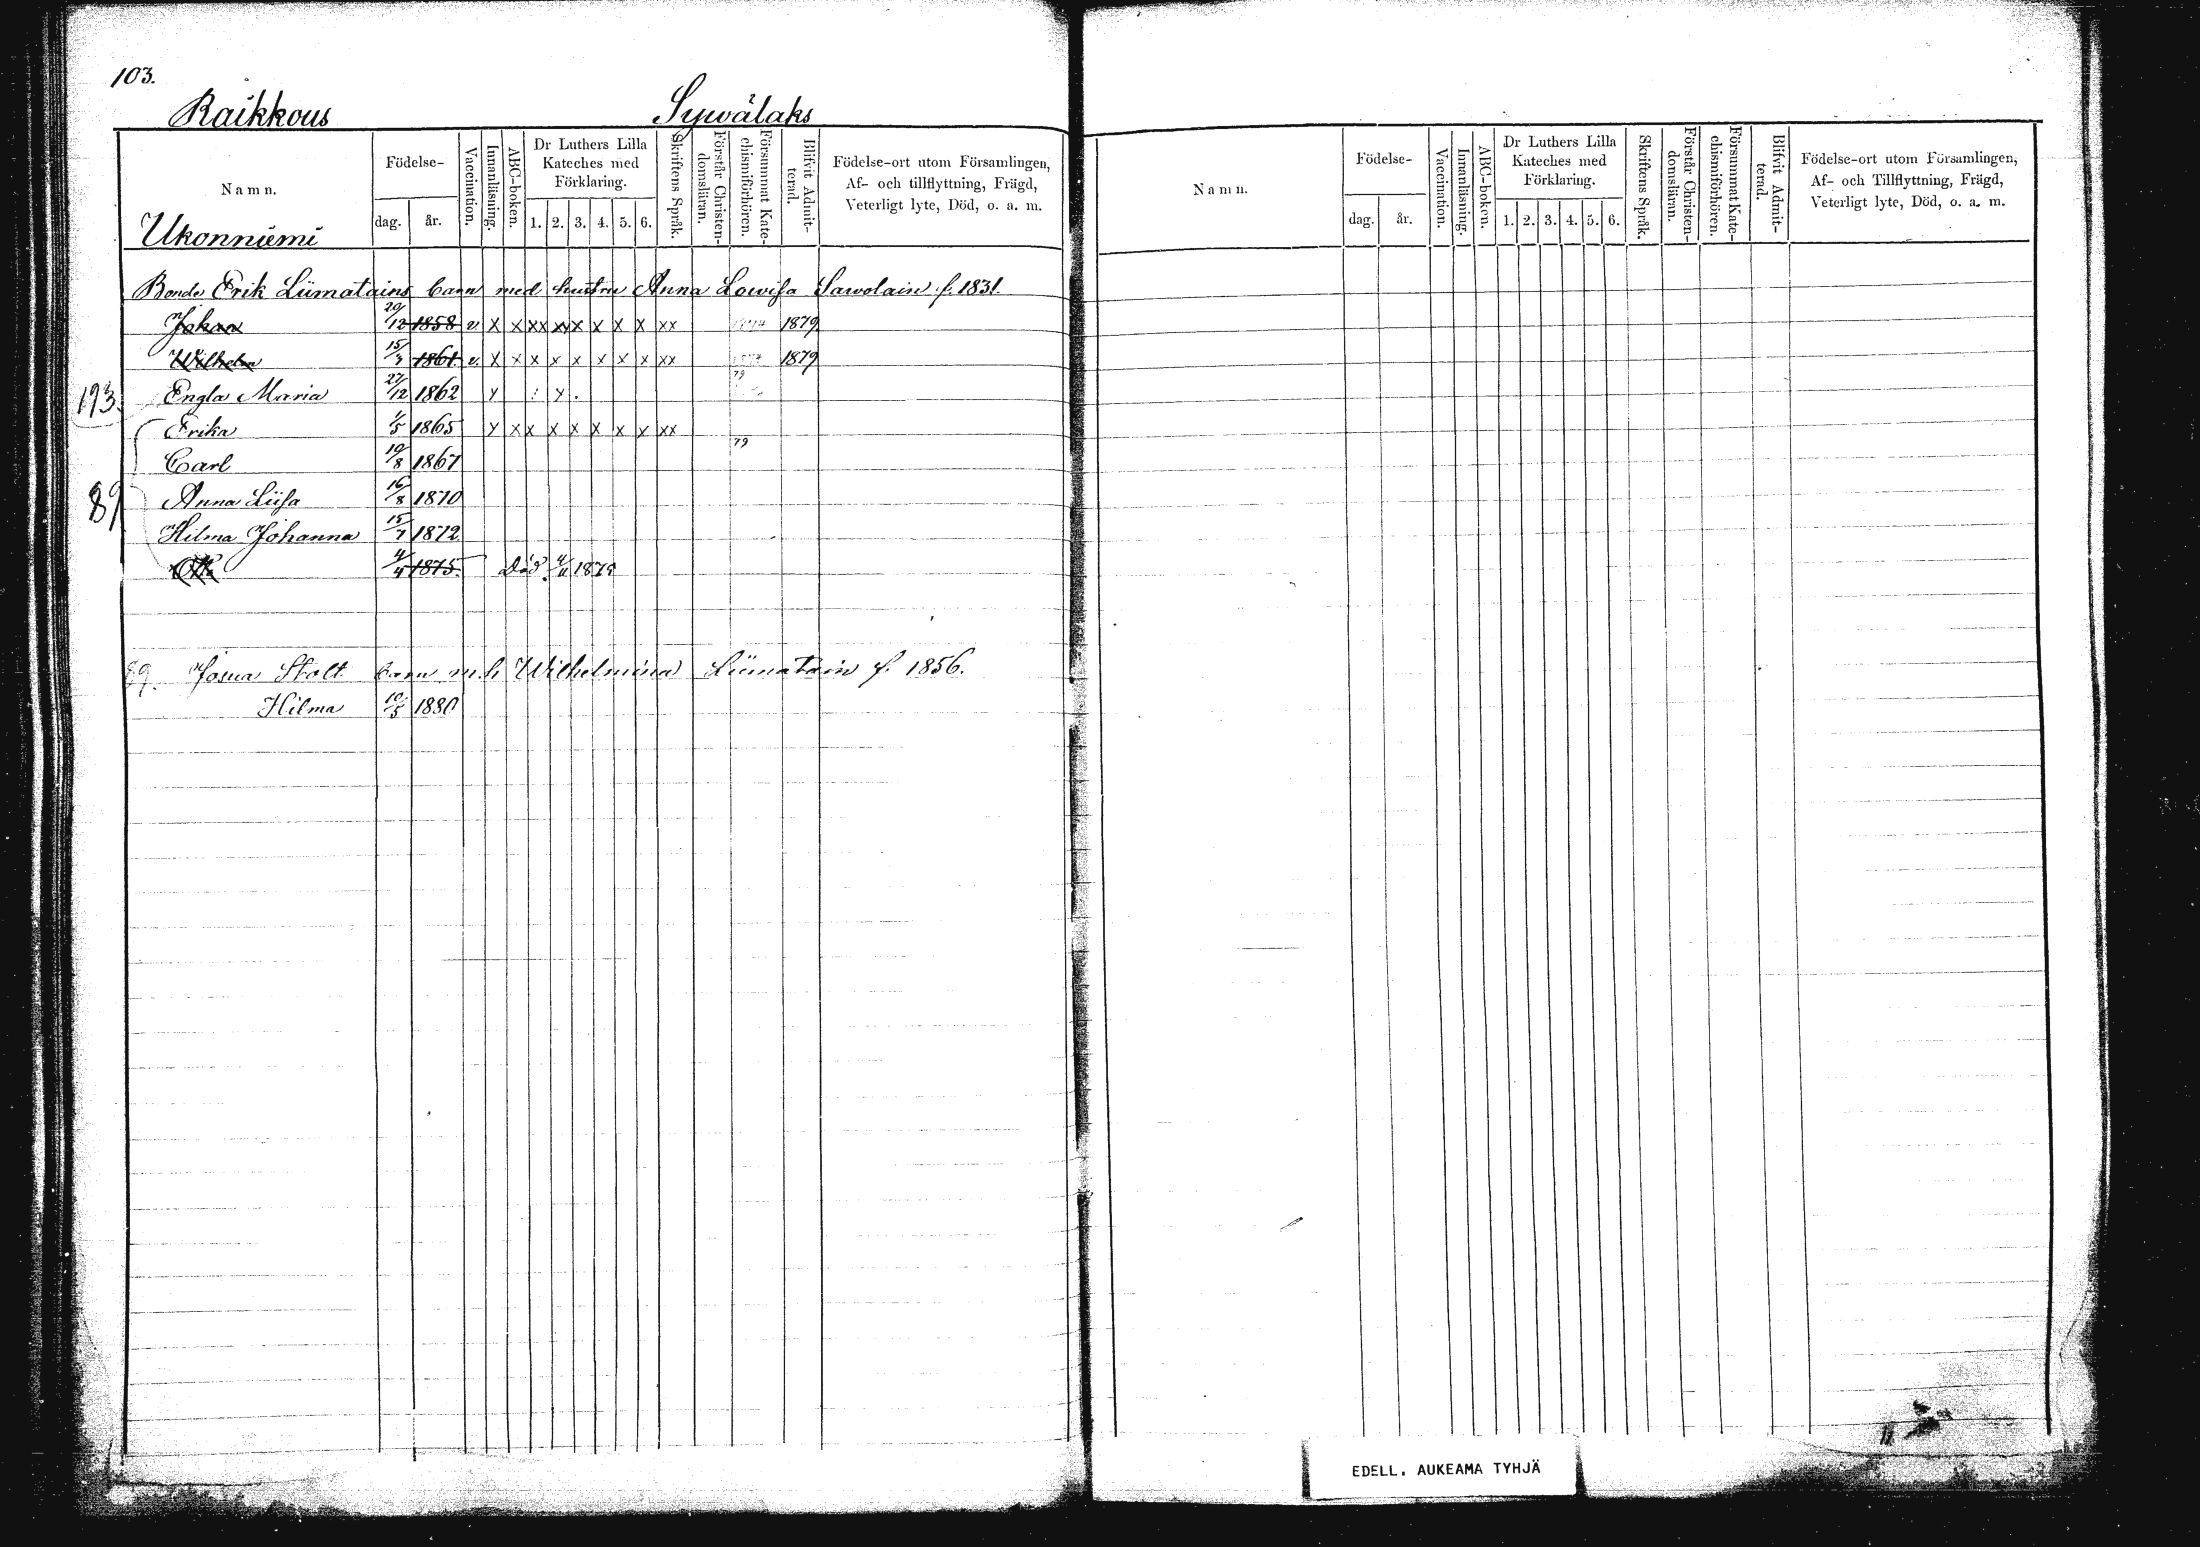 103.
Raikkous Sywälaks
Namn.
Födelse-
dag. år.
Vaccination.
Innanläsning.
ABC-boken.
Dr Luthers Lilla Kateches med Förklaring.
1. 2. 3. 4. 5. 6.
Skriftens Språk.
Förstår Christendomsläran.
Försummat Katechismiförhören.
Blifvit Admitterad.
Födelse-ort utom Församlingen, Af- och tillflyttning, Frägd, Veterligt lyte, Död, o. a. m.
Ukonniemi
Bonde Erik Liimatains barn med hustru Anna Lowisa Sawolain f. 1831.
Johan 29/12 1858 v x x xx xx x x x x xx 1879
Wilhelm 15/3 1861. v. x x x x x x x x xx 1879
193. Engla Maria 27/12 1862 y y . 79
Erika 1/5 1865 y x x x x x x x xx
Carl 19/8 1867 79
89 Anna Liisa 16/8 1870
Hilma Johanna 15/7 1872
Otto 4/4 1875. Död 4/11 1875
89. Josua Stolt barn m.h Wilhelmina Liimatain f. 1856.
Hilma 10/5 1880
Namn.
Födelse-
dag. år.
Vaccination.
Innanläsning.
ABC-boken.
Dr Luthers Lilla Kateches med Förklaring.
1. 2. 3. 4. 5. 6.
Skriftens Språk.
Förstår Christendomsläran.
Försummat Katechismiförhören.
Blifvit Admitterad.
Födelse-ort utom Församlingen, Af- och Tillflyttning, Frägd, Veterligt lyte, Död, o. a. m.
EDELL. AUKEAMA TYHJÄ